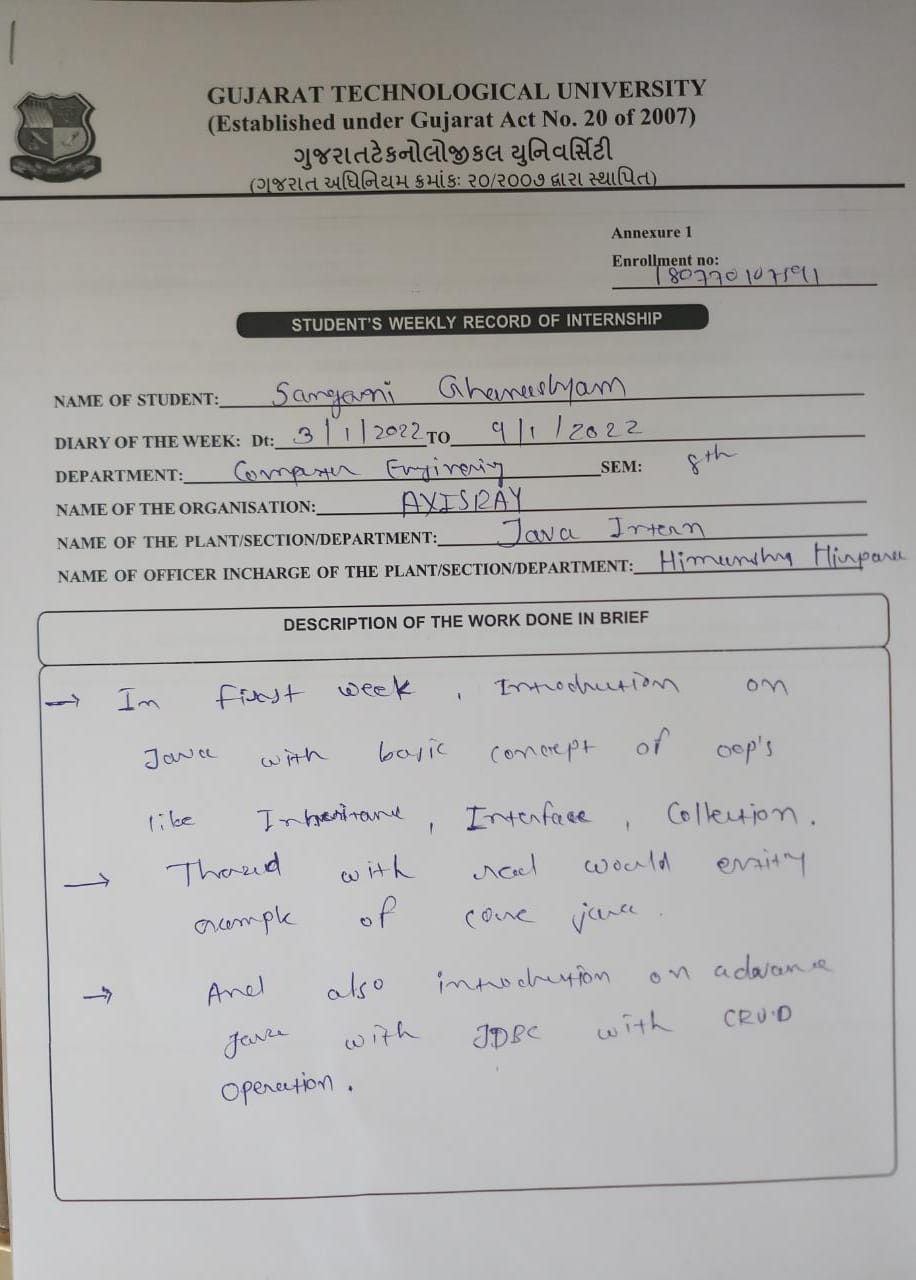 GUJARAT TECHNOLOGICAL UNIVERSITY
(Established under Gujarat Act No. 20 of 2007)
ગુજરાતટેકનોલોજીકલ યુનિવર્સિટી
(ગુજરાત અધિનિયમ ક્રમાંકઃ ૨૦/૨૦૦૭ દ્વારા સ્થાપિત)
Annexure 1
Enrollment no:
180770107591
STUDENT'S WEEKLY RECORD OF INTERNSHIP
NAME OF STUDENT: Sangani Ghaneshyam
DIARY OF THE WEEK: Dt: 3/1/2022 TO 9/1/2022
DEPARTMENT: Computer SEM: 8th
NAME OF THE ORGANISATION: AXISRAY
NAME OF THE PLANT/SECTION/DEPARTMENT: Java Intern
NAME OF OFFICER INCHARGE OF THE PLANT/SECTION/DEPARTMENT: Hirpara
DESCRIPTION OF THE WORK DONE IN BRIEF
→ In first week , Introduction on
Java with basic concept of oop's
like , Interface , Collection .
→ with real would entity
example of core java .
→ And also introduction on advance
Java with JDBC with CRUD
operation .